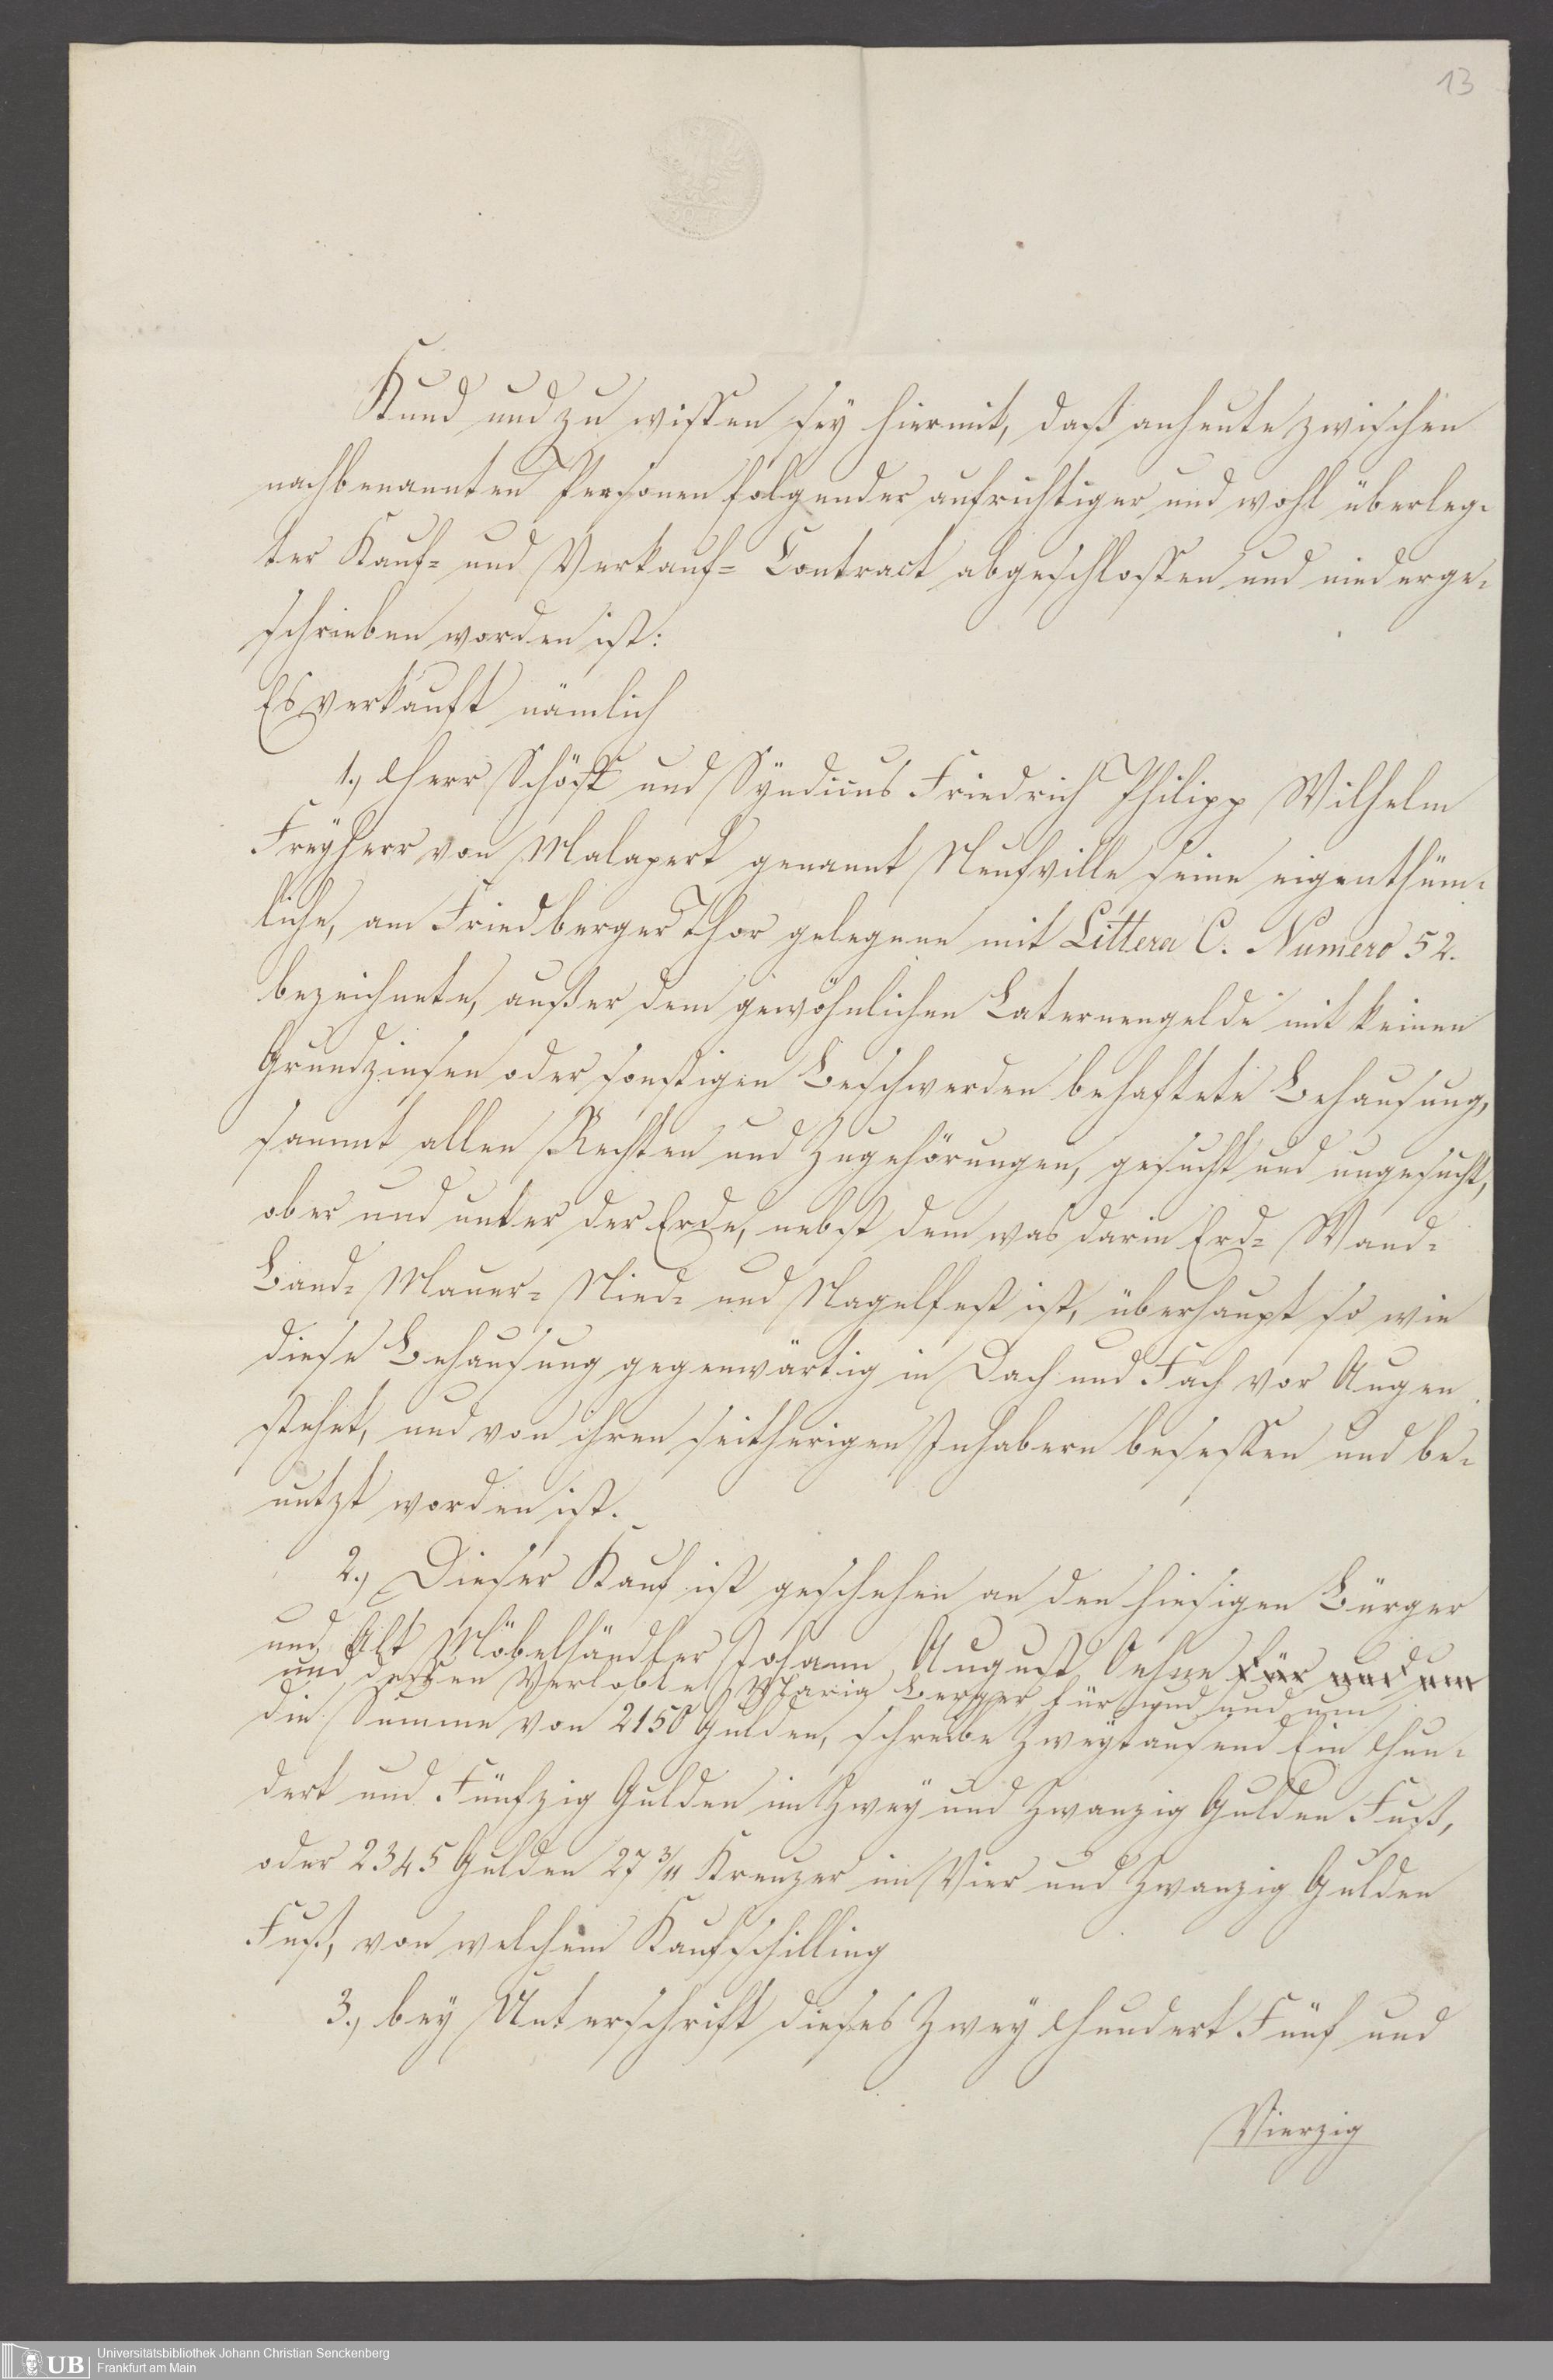 13
Kund und zu wissen sey hiermit, daß anheute zwischen
nachbenannten Personen folgender aufrichtiger und wohl überleg-
ter Kauf- und Verkauf- Contract abgeschlossen und niederge-
schrieben worden ist:
Es verkauft nämlich
1., Herr Schöff und Syndicus Friedrich Philipp Wilhelm
Freyherr von Malapert genannt Neufville seine eigenthüm-
liche, am Friedberger Thor gelegene mit Littera C. Numero 52.
bezeichnete, außer dem gewöhnlichen Laternengelde mit keinen
Grundzinsen oder sonstigen Beschwerden behaftete Behausung,
sammt allen Rechten und Zugehörungen, gesucht und ungesucht,
ober und unter der Erde, nebst dem was darin Erd- Wand-
Band- Mauer- Nied- und Nagelfest ist, überhaupt so wie
diese Behausung gegenwärtig in Dach und Fach vor Augen
stehet, und von ihren seitherigen Inhabern besessen und be-
nutzt worden ist.
2., Dieser Kauf ist geschehen an den hiesigen Bürger
und Alt Möbelhändler Johann August Oehne für und um
und dessen Verlobte Maria Berger für und um
die Summe von 2150 Gulden, schreibe Zweytausend Ein Hun-
dert und Fünfzig Gulden im Zwey und Zwanzig Gulden Fuß,
oder 2345 Gulden 27 3/11 Kreuzer im Vier und Zwanzig Gulden
Fuß, von welchem Kaufschilling
3., bey Unterschrift dieses Zwey Hundert Fünf und
Vierzig
UB
Universitätsbibliothek Johann Christian Senckenberg
Frankfurt am Main